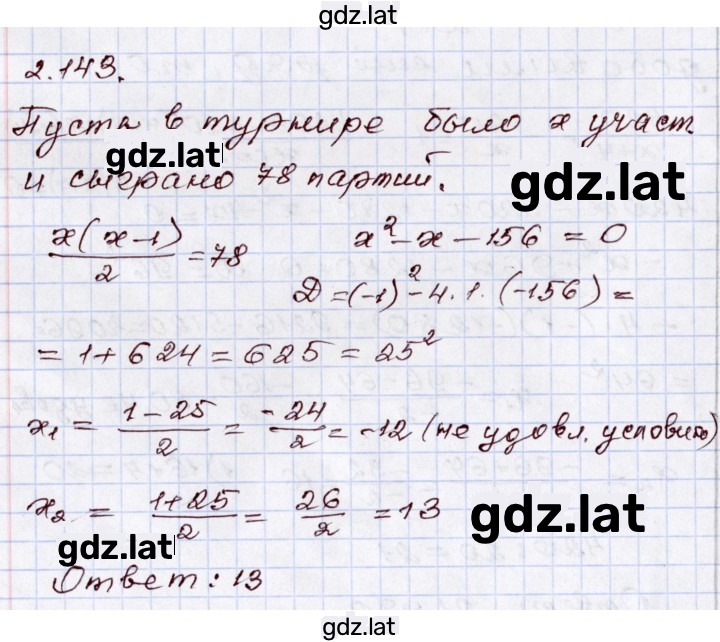 gdz.lat
2.143.
Пусть в турнире было x участ
gdz.lat
и сыграно 78 партий.
gdz.lat
x(x-1)/2 = 78
x² - x - 156 = 0
D = (-1)² - 4·1·(-156) =
= 1 + 624 = 625 = 25²
x₁ = (1-25)/2 = -24/2 = -12 (не удовл. условию)
x₂ = (1+25)/2 = 26/2 = 13
gdz.lat
gdz.lat
Ответ: 13
gdz.lat